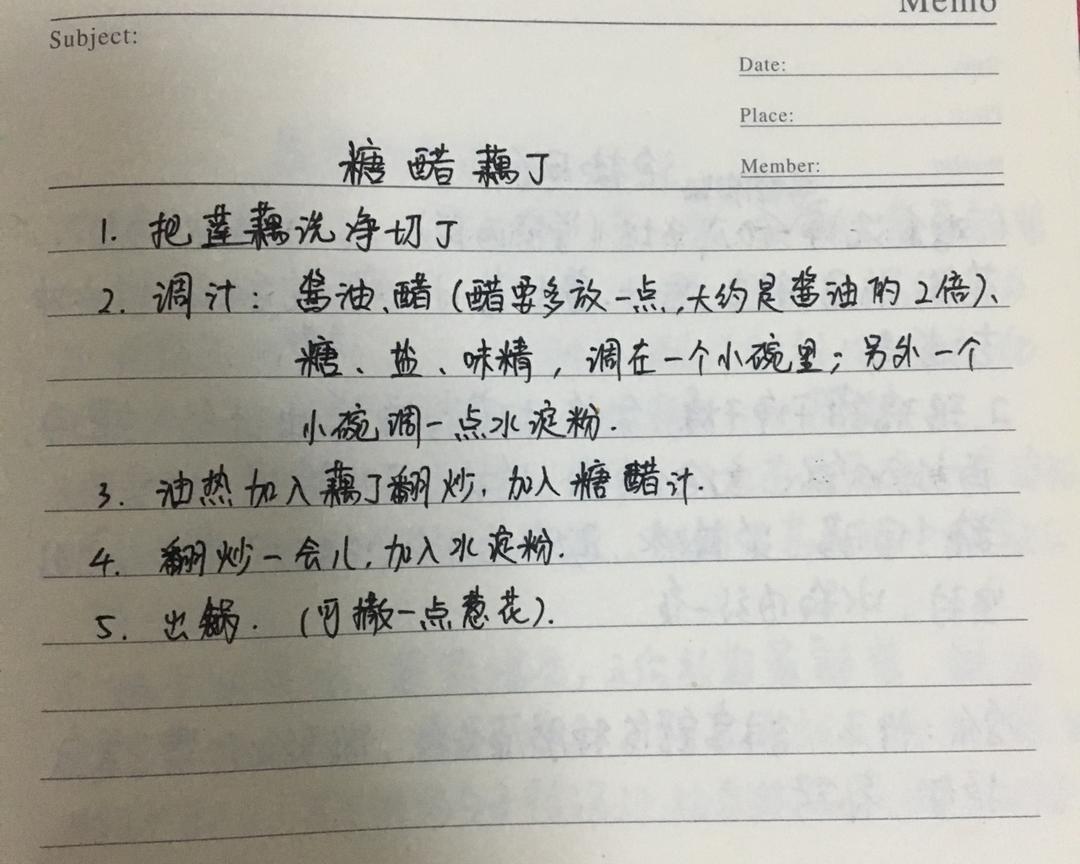 Memo
Subject:
Date:
Place:
Member:
糖醋藕丁
1. 把莲藕洗净切丁
2. 调汁：酱油、醋（醋要多放一点，大约是酱油的2倍）、
糖、盐、味精，调在一个小碗里；另外一个
小碗调一点水淀粉.
3. 油热加入藕丁翻炒，加入糖醋汁.
4. 翻炒一会儿，加入水淀粉.
5. 出锅.（可撒一点葱花）.